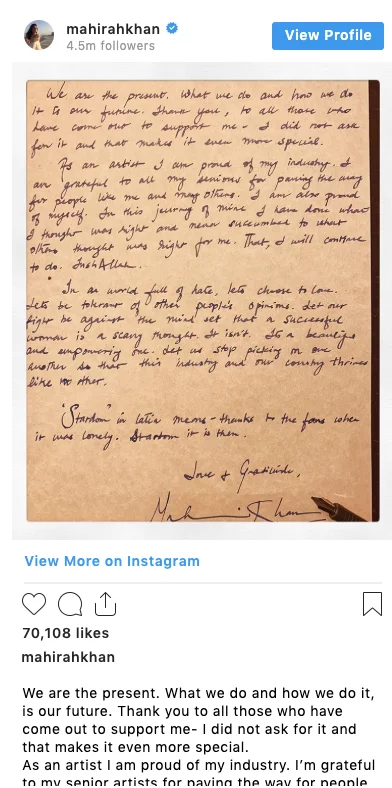 mahirahkhan
4.5m followers
View Profile
We are the present. What we do and how we do
it is our future. Thank you, to all those who
have come out to support me - I did not ask
for it and that makes it even more special.
As an artist I am proud of my industry. I
am grateful to all my seniors for paving the way
for people like me and many others. I am also proud
of myself. In this journey of mine I have done what
I thought was right and never succumbed to what
others thought was right for me. That, I will continue
to do. InshAllah.
In a world full of hate, lets choose to love.
Lets be tolerant of other people's opinions. Let our
fight be against the mind set that a successful
woman is a scary thought. It isn't. Its a beautiful
and empowering one. Let us stop picking on one
another so that this industry and our country thrives
like no other.
'Stardom' in latin means - thanks to the fans when
it was lonely. Stardom it is then.
Love & Gratitude,
Mahira Khan
View More on Instagram
70,108 likes
mahirahkhan
We are the present. What we do and how we do it,
is our future. Thank you to all those who have
come out to support me- I did not ask for it and
that makes it even more special.
As an artist I am proud of my industry. I’m grateful
to my senior artists for paving the way for people